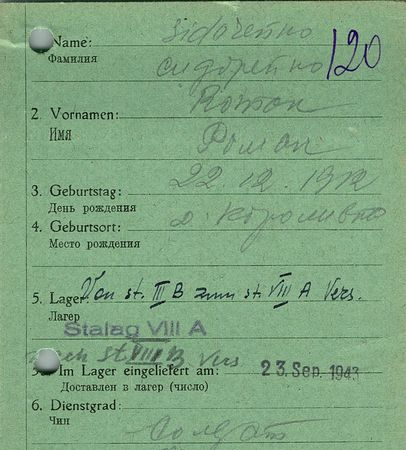 Name: Sidorenko
Фамилия Сидоренко
120
2. Vornamen: Roman
Имя Роман
3. Geburtstag: 22.12.1912
День рождения
4. Geburtsort: д. Короливка
Место рождения
5. Lager: Von St. III B zum St. VIII A Vers.
Лагер
Stalag VIII A
St. VIII B Vers
Im Lager eingeliefert am: 23. Sep. 1943
Доставлен в лагер (число)
6. Dienstgrad:
Чин Солдат